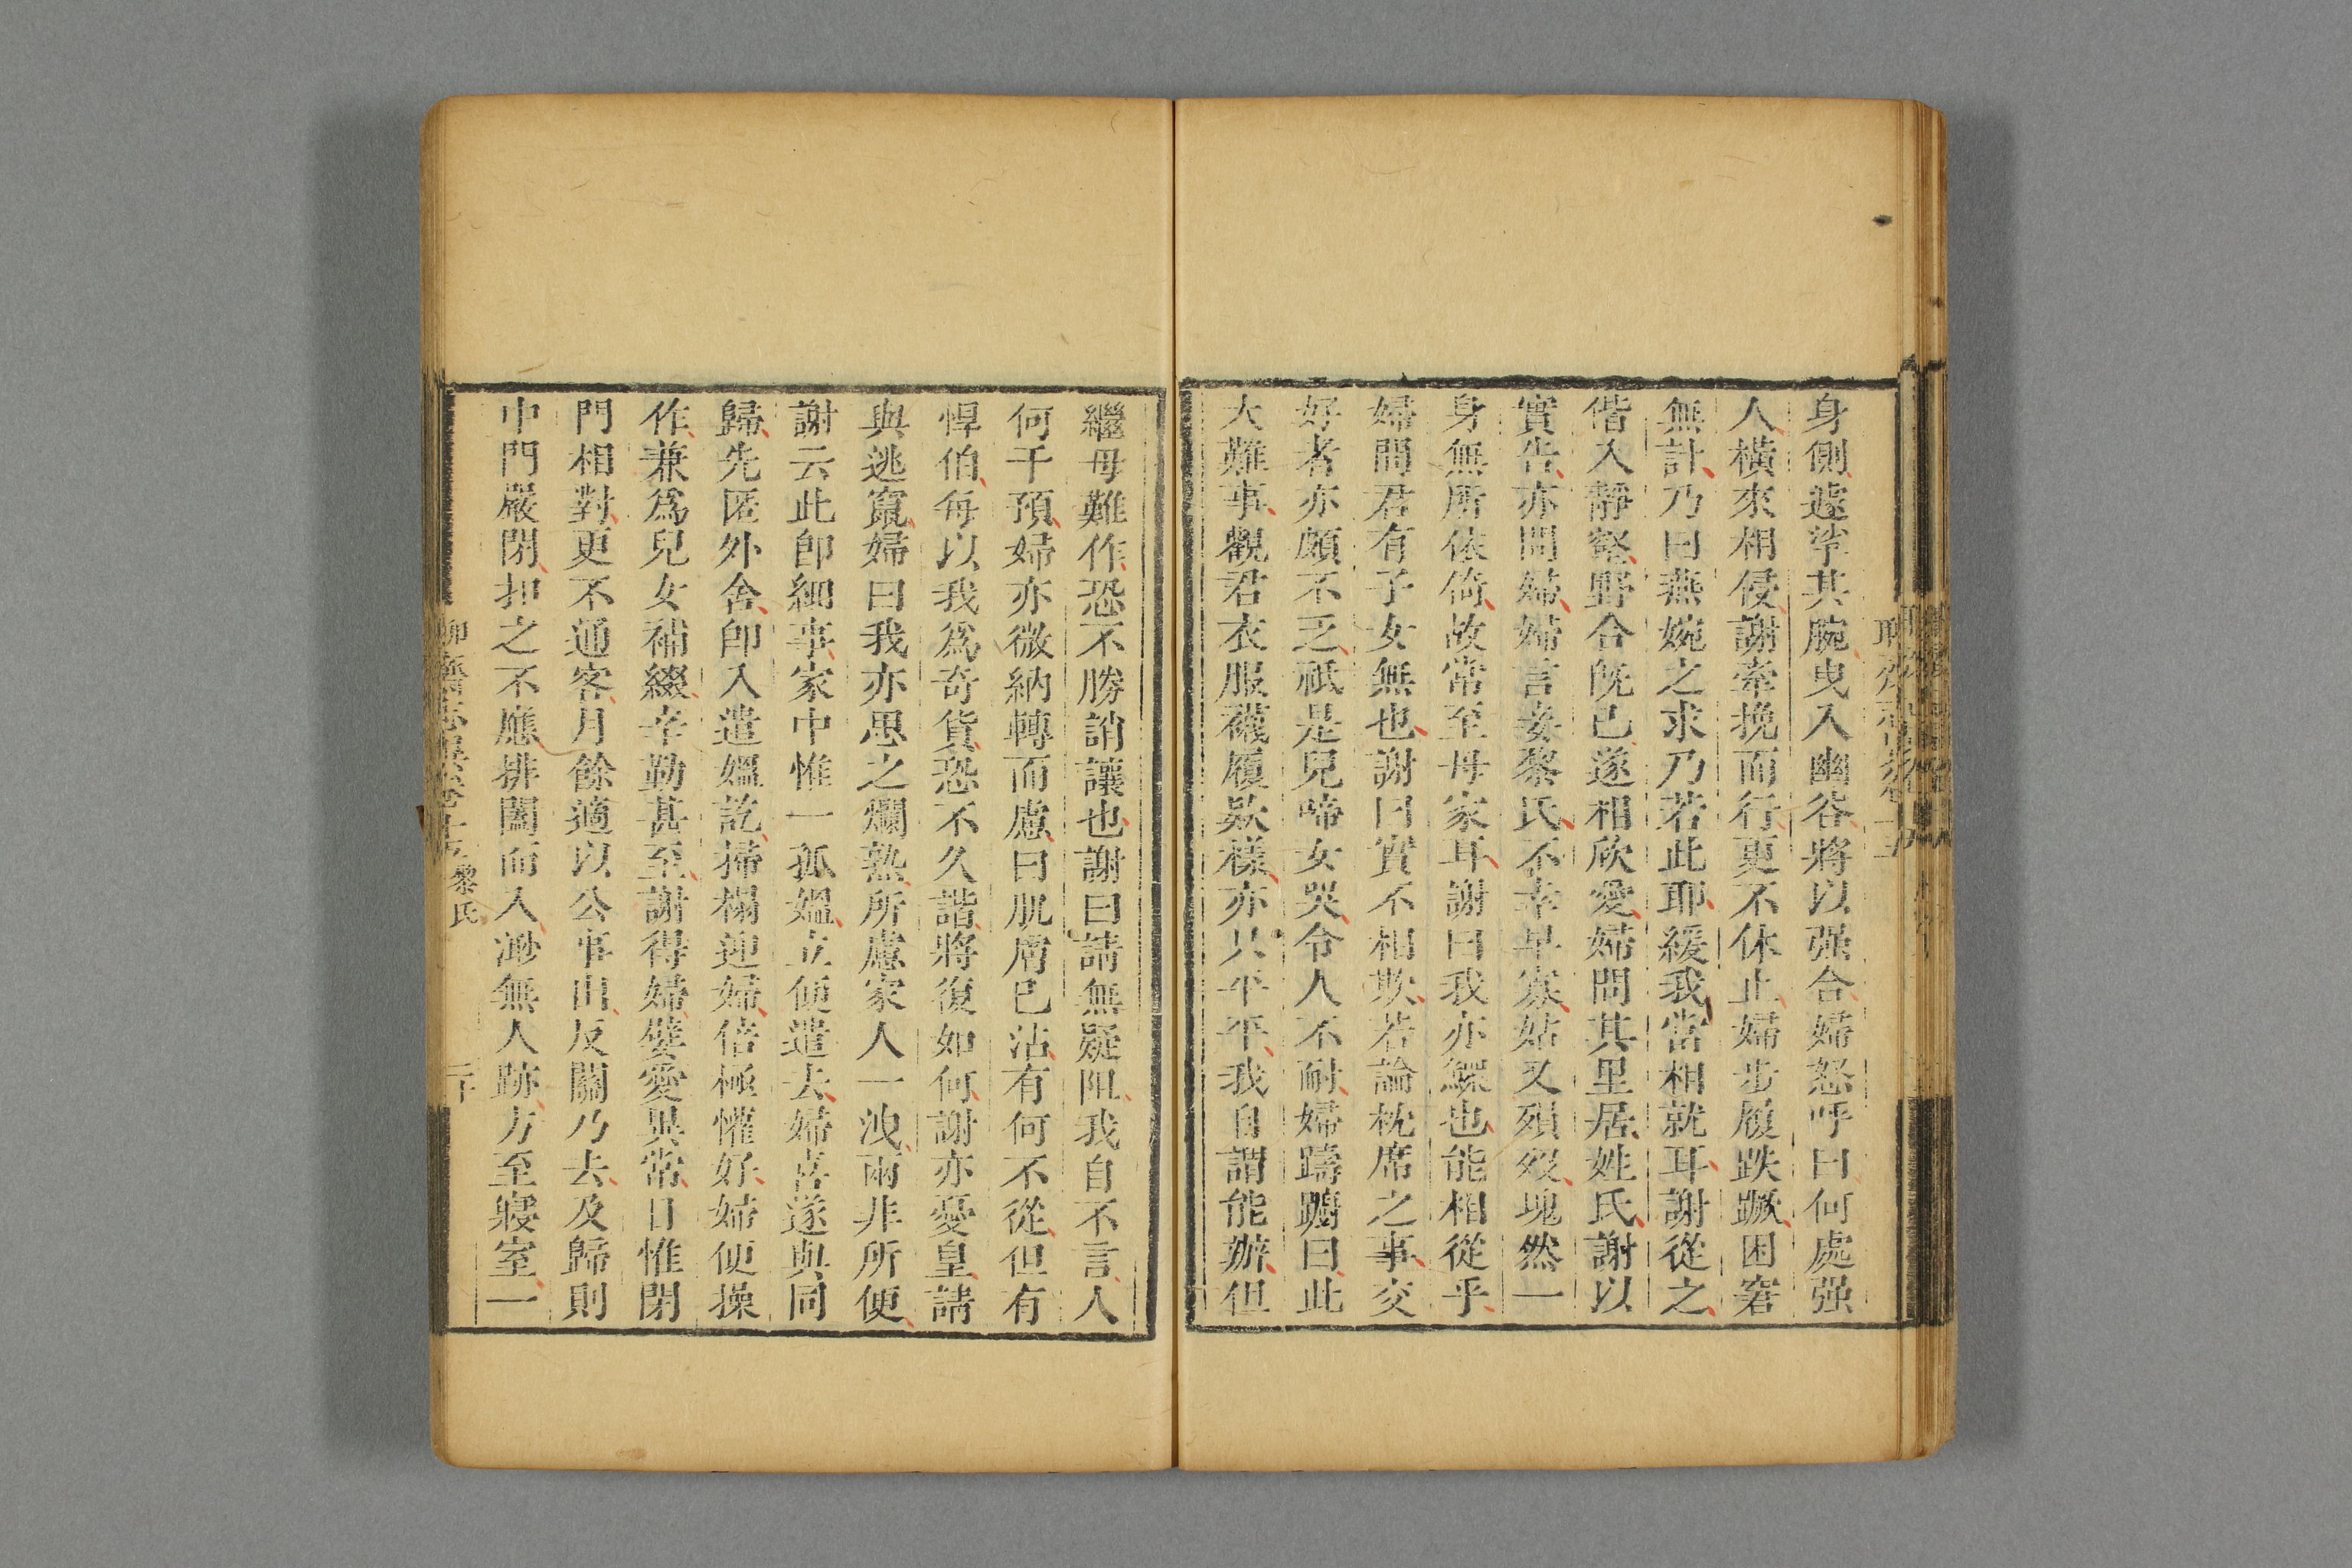 身側遽挲其腕曳入幽谷將以强合婦怒呼曰何處强
人橫來相侵謝牽挽而行更不休止婦步履跌蹶困窘
無計乃曰燕婉之求乃若此耶緩我當相就耳謝從之
偕入靜壑野合旣已遂相欣愛婦問其里居姓氏謝以
實告亦問婦婦言妾黎氏不幸早寡姑又殞歿塊然一
身無所依倚故常至母家耳謝曰我亦鰥也能相從乎
婦問君有子女無也謝曰實不相欺若論枕席之事交
好者亦頗不乏祇是兒啼女哭令人不耐婦躊躇曰此
大難事觀君衣服襪履欵樣亦只平平我自謂能辦但
繼母難作恐不勝誚讓也謝曰請無疑阻我自不言人
何干預婦亦微納轉而慮曰肌膚已沾有何不從但有
悍伯每以我爲奇貨恐不久諧將復如何謝亦憂皇請
與逃竄婦曰我亦思之爛熟所慮家人一洩兩非所便
謝云此卽細事家中惟一孤媼立便遣去婦喜遂與同
歸先匿外舍卽入遣媼訖掃榻迎婦倍極懽好婦便操
作兼爲兒女補綴辛勤甚至謝得婦嬖愛異常日惟閉
門相對更不通客月餘適以公事出反關乃去及歸則
中門嚴閉扣之不應排闔而入渺無人跡方至寢室一
聊齋志異卷十五 黎氏 二十